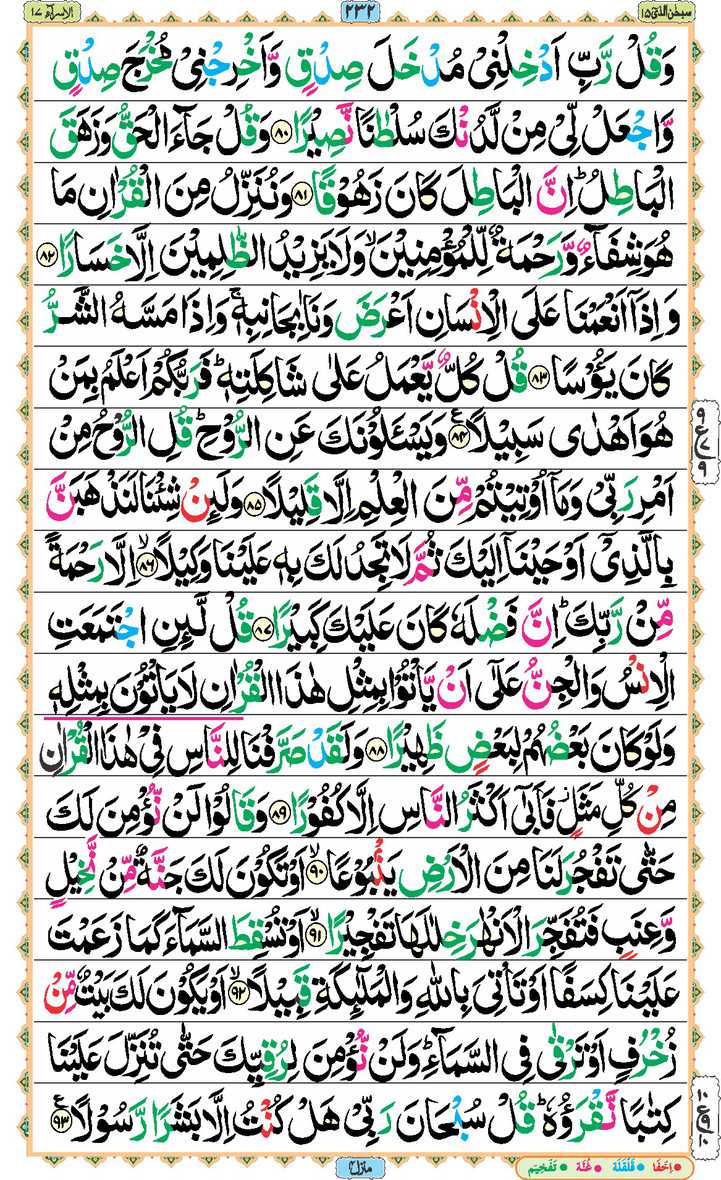 الاسراء ١٧
٢٣٢
سبحٰن الذیٓ ١٥
وَقُلْ رَّبِّ اَدْخِلْنِیْ مُدْخَلَ صِدْقٍ وَّاَخْرِجْنِیْ مُخْرَجَ صِدْقٍ
وَّاجْعَلْ لِّیْ مِنْ لَّدُنْكَ سُلْطٰنًا نَّصِیْرًا ٨٠ وَقُلْ جَآءَ الْحَقُّ وَزَهَقَ
الْبَاطِلُ ؕ اِنَّ الْبَاطِلَ كَانَ زَهُوْقًا ٨١ وَنُنَزِّلُ مِنَ الْقُرْاٰنِ مَا
هُوَ شِفَآءٌ وَّرَحْمَةٌ لِّلْمُؤْمِنِیْنَ ۙ وَلَا یَزِیْدُ الظّٰلِمِیْنَ اِلَّا خَسَارًا ٨٢
وَاِذَاۤ اَنْعَمْنَا عَلَی الْاِنْسَانِ اَعْرَضَ وَنَاٰ بِجَانِبِهٖ ۚ وَاِذَا مَسَّهُ الشَّرُّ
كَانَ یَـُٔوْسًا ٨٣ قُلْ كُلٌّ یَّعْمَلُ عَلٰی شَاكِلَتِهٖ ؕ فَرَبُّكُمْ اَعْلَمُ بِمَنْ
هُوَ اَهْدٰی سَبِیْلًا ٨٤ ع وَیَسْـَٔلُوْنَكَ عَنِ الرُّوْحِ ؕ قُلِ الرُّوْحُ مِنْ
اَمْرِ رَبِّیْ وَمَاۤ اُوْتِیْتُمْ مِّنَ الْعِلْمِ اِلَّا قَلِیْلًا ٨٥ وَلَىِٕنْ شِئْنَا لَنَذْهَبَنَّ
بِالَّذِیْۤ اَوْحَیْنَاۤ اِلَیْكَ ثُمَّ لَا تَجِدُ لَكَ بِهٖ عَلَیْنَا وَكِیْلًا ٨٦ ۙ اِلَّا رَحْمَةً
مِّنْ رَّبِّكَ ؕ اِنَّ فَضْلَهٗ كَانَ عَلَیْكَ كَبِیْرًا ٨٧ قُلْ لَّىِٕنِ اجْتَمَعَتِ
الْاِنْسُ وَالْجِنُّ عَلٰۤی اَنْ یَّاْتُوْا بِمِثْلِ هٰذَا الْقُرْاٰنِ لَا یَاْتُوْنَ بِمِثْلِهٖ
وَلَوْ كَانَ بَعْضُهُمْ لِبَعْضٍ ظَهِیْرًا ٨٨ وَلَقَدْ صَرَّفْنَا لِلنَّاسِ فِیْ هٰذَا الْقُرْاٰنِ
مِنْ كُلِّ مَثَلٍ ؗ فَاَبٰۤی اَكْثَرُ النَّاسِ اِلَّا كُفُوْرًا ٨٩ وَقَالُوْا لَنْ نُّؤْمِنَ لَكَ
حَتّٰی تَفْجُرَ لَنَا مِنَ الْاَرْضِ یَنْۢبُوْعًا ٩٠ ۙ اَوْ تَكُوْنَ لَكَ جَنَّةٌ مِّنْ نَّخِیْلٍ
وَّعِنَبٍ فَتُفَجِّرَ الْاَنْهٰرَ خِلٰلَهَا تَفْجِیْرًا ٩١ ۙ اَوْ تُسْقِطَ السَّمَآءَ كَمَا زَعَمْتَ
عَلَیْنَا كِسَفًا اَوْ تَاْتِیَ بِاللّٰهِ وَالْمَلٰٓىِٕكَةِ قَبِیْلًا ٩٢ ۙ اَوْ یَكُوْنَ لَكَ بَیْتٌ مِّنْ
زُخْرُفٍ اَوْ تَرْقٰی فِی السَّمَآءِ ؕ وَلَنْ نُّؤْمِنَ لِرُقِیِّكَ حَتّٰی تُنَزِّلَ عَلَیْنَا
كِتٰبًا نَّقْرَؤُهٗ ؕ قُلْ سُبْحَانَ رَبِّیْ هَلْ كُنْتُ اِلَّا بَشَرًا رَّسُوْلًا ٩٣ ع
منزل ٤
اِخفَا • قَلْقَلَة • غُنَّه • تَفْخِیْم •